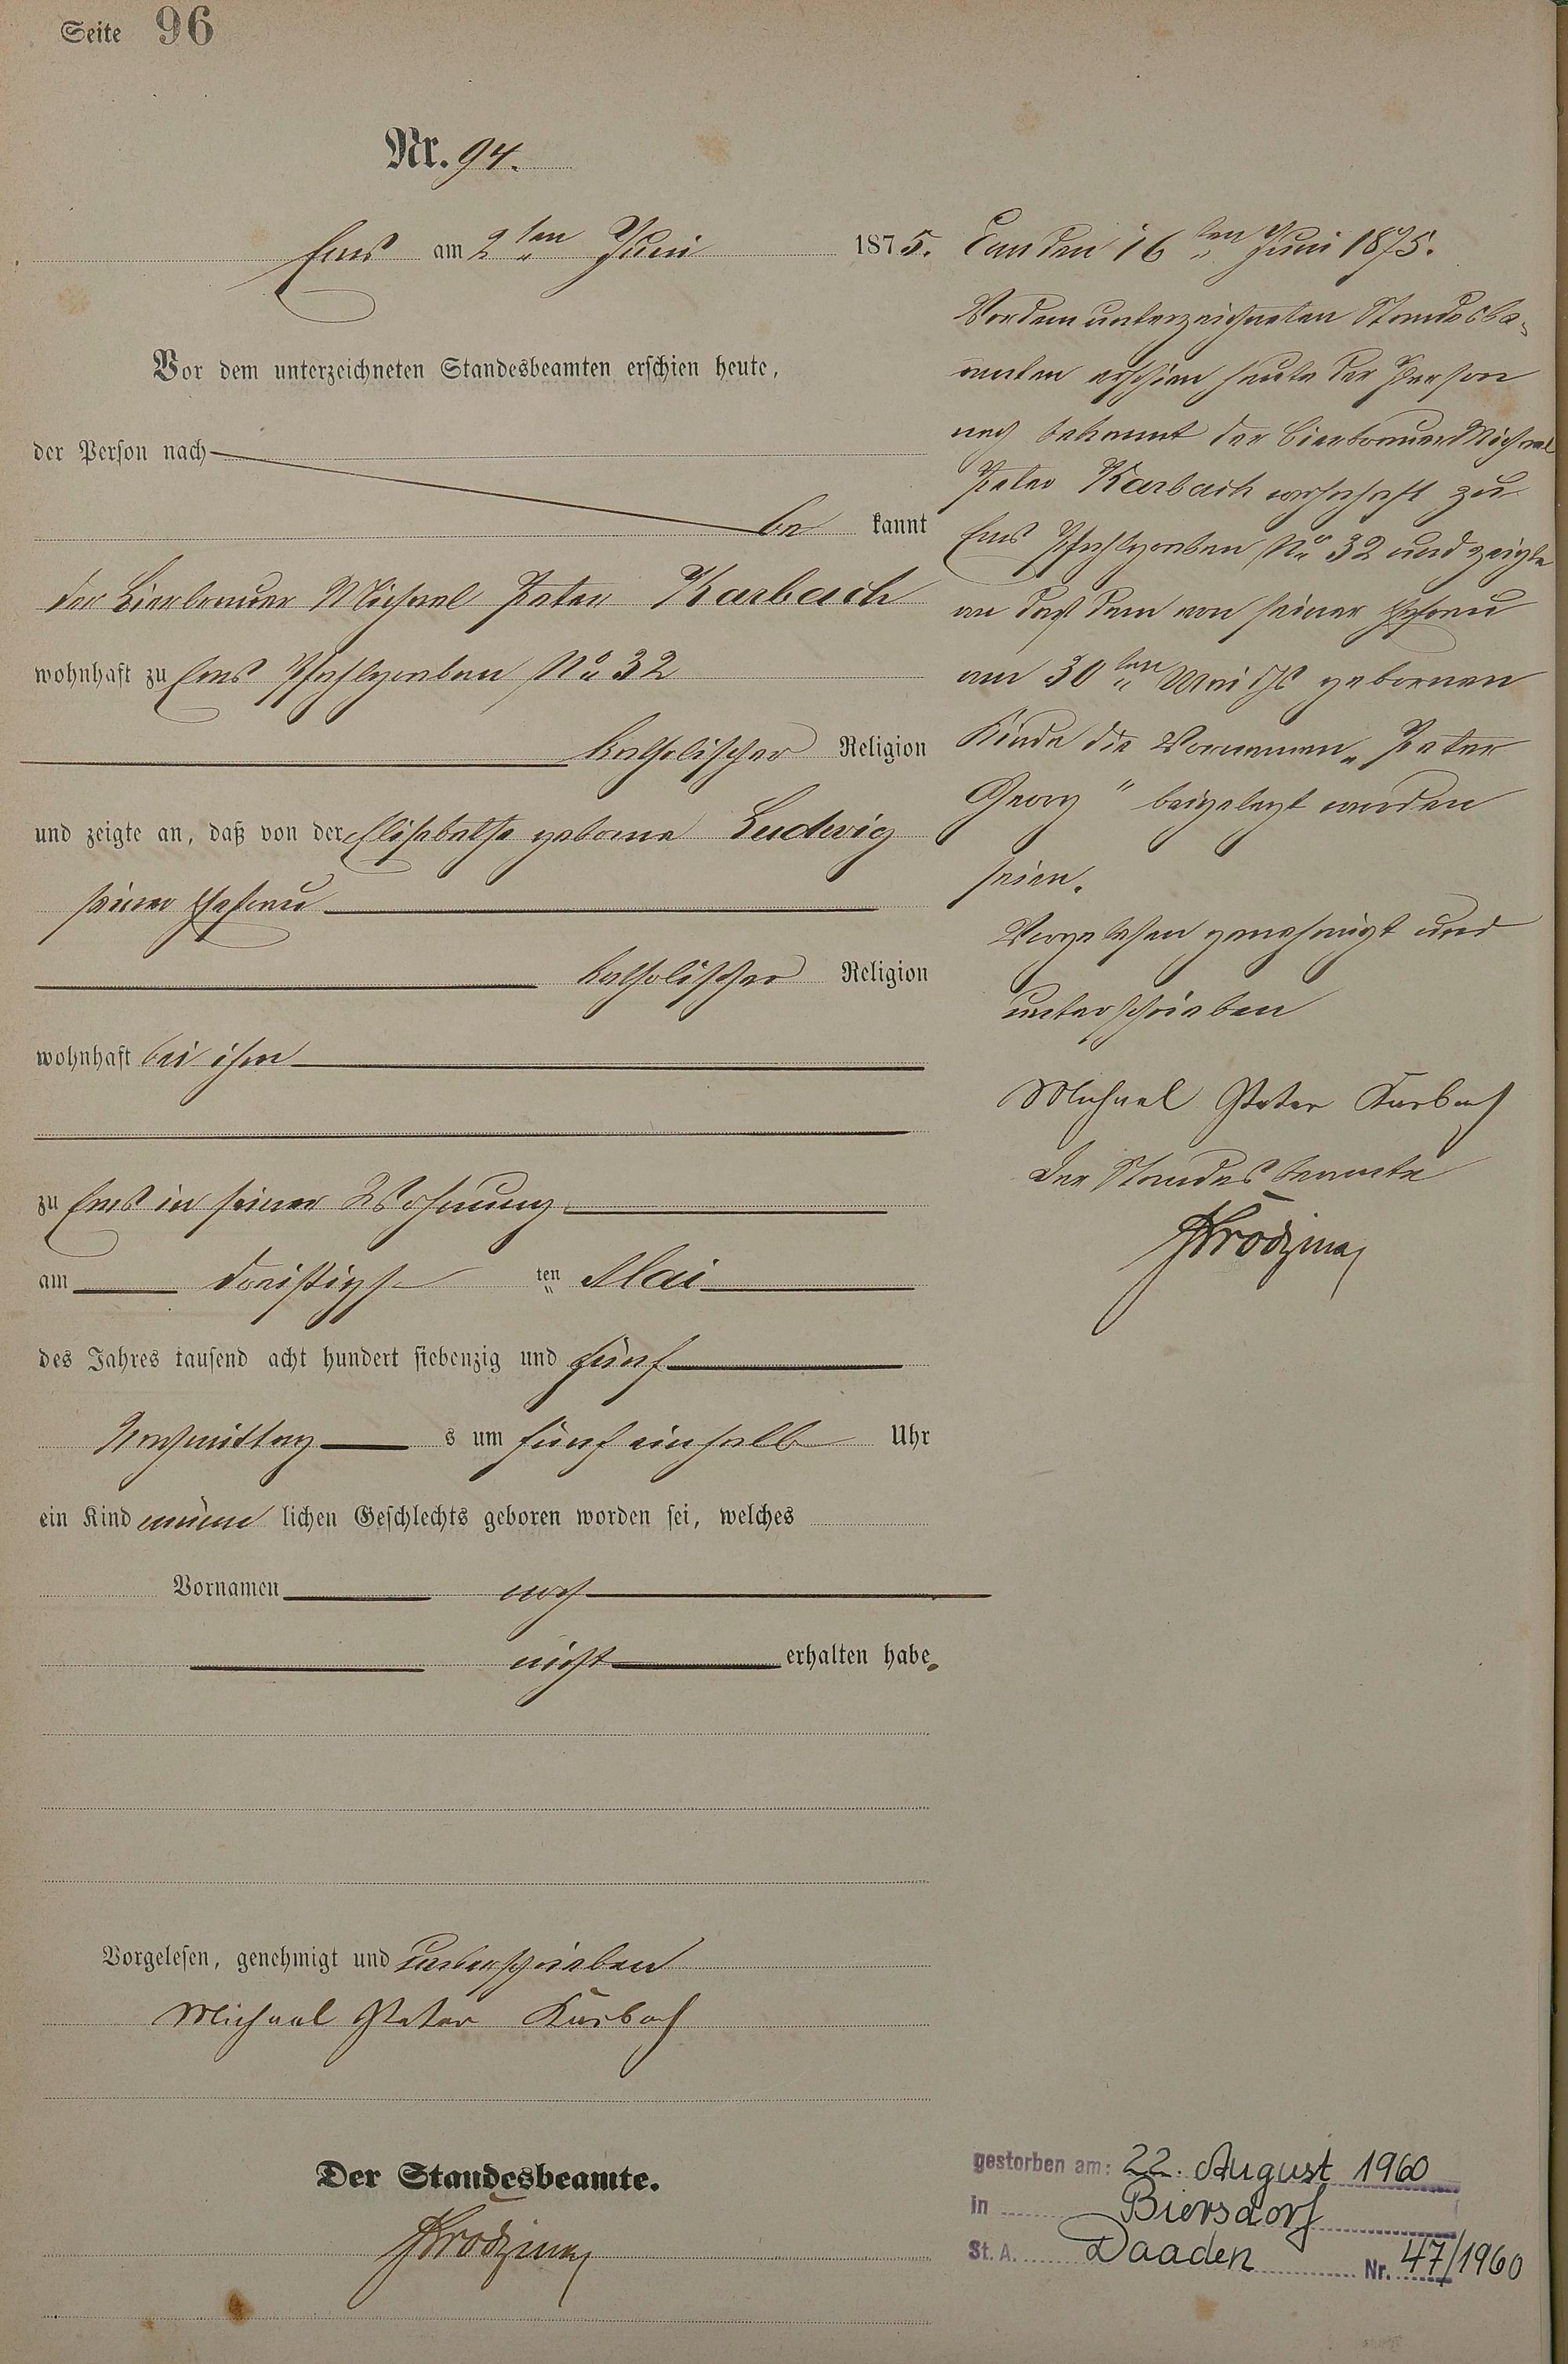 Seite 96
Nr. 94.
Ems am 2ten Juni 1875.
Vor dem unterzeichneten Standesbeamten erschien heute,
der Person nach
be kannt
der Bierbrauer Michael Peter Karbach
wohnhaft zu Ems Pfahlgraben No 32
katholischer Religion
und zeigte an, daß von der Elisabetha geborne Ludwig
seiner Ehefrau
katholischer Religion
wohnhaft bei ihm
zu Ems in seiner Wohnung
am dreißigs ten Mai
des Jahres tausend acht hundert siebenzig und fünf
Nachmittag s um fünf einhalb Uhr
ein Kind männ lichen Geschlechts geboren worden sei, welches
Vornamen noch
nicht erhalten habe.
Vorgelesen, genehmigt und unterschrieben
Michael Peter Karbach
Der Standesbeamte.
Ems den 16ten Juni 1875.
Vor dem unterzeichneten Standesbe-
amten erschien heute der Person
nach bekannt der Bierbrauer Michael
Peter Karbach wohnhaft zu
Ems Pfahlgraben No 32 und zeigte
an daß dem von seiner Ehefrau
am 30ten Mai gebornen
Kinde die Vornamen „Peter
Georg" beigelegt worden
seien.
Vorgelesen genehmigt und
unterschrieben
Michael Peter Karbach
Der Standesbeamte
gestorben am: 22. August 1960
in Biersdorf
St. A. Daaden Nr. 47/1960